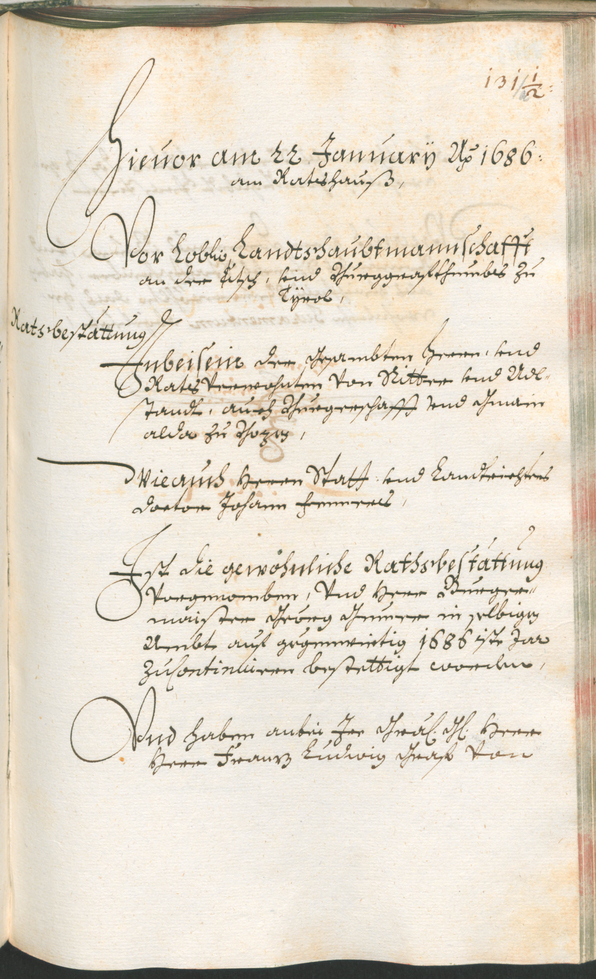 131 1/2
Hieuor am 22 January Ao 1686
am Rathshauß,
Vor Loblicher Landtshaubtmannschafft
an der Etsch, vnd Burggrafthumbs zu
Tyrol,
Ratsbestättung
Inbeisein der Herrn vnd
Rats Verwohnten von Ritter vnd Adl
standt, auch Burgerschafft vnd Gmain
alda zu Bozen,
Wie auch Herrn Statt vnd Landtrichters
doctor Johann
Ist die gewöhnliche Rathsbestättung
Vorgenomben, Vnd Herr Burger-
maister Georg in selbigen
Ambt auf gegenwirtig 1686 iste Jar
Zu Continuieren bestettigt worden,
Vnd haben anbei Ir Herr
Herr Franz Ludwig Graf von